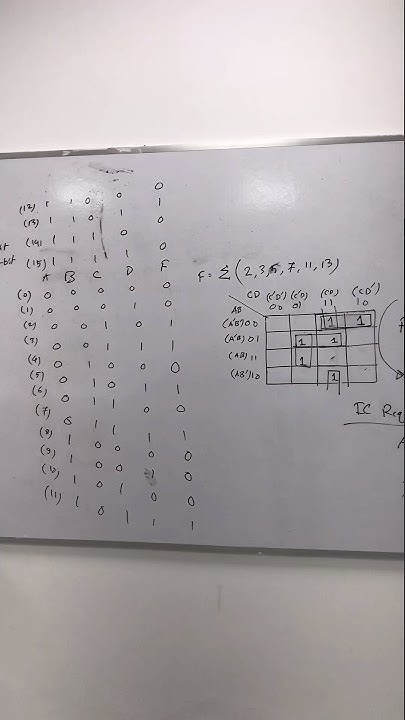 (12) 1 1 0 0 0
(13) 1 1 0 1 1
(14) 1 1 1 0
(15) 1 1 1 1 0
A B C D F
(0) 0 0 0 0 0
(1) 0 0 0 1 0
(2) 0 0 1 0 1
(3) 0 0 1 1 1
(4) 0 1 0 0 0
(5) 0 1 0
(6) 0 1 1 0 0
(7) 0 1 1 1 1
(8) 1 0 0 0 0
(9) 1 0 0 1 0
(10) 1 0 1 0 0
(11) 1 0 1 1 1
F = Σ (2, 3, 5, 7, 11, 13)
CD (C'D') (C'D) (CD) (CD')
AB 00 01 11 10
(A'B') 00 1 1
(A'B) 01 1 1
(AB) 11 1
(AB') 10 1
IC Req